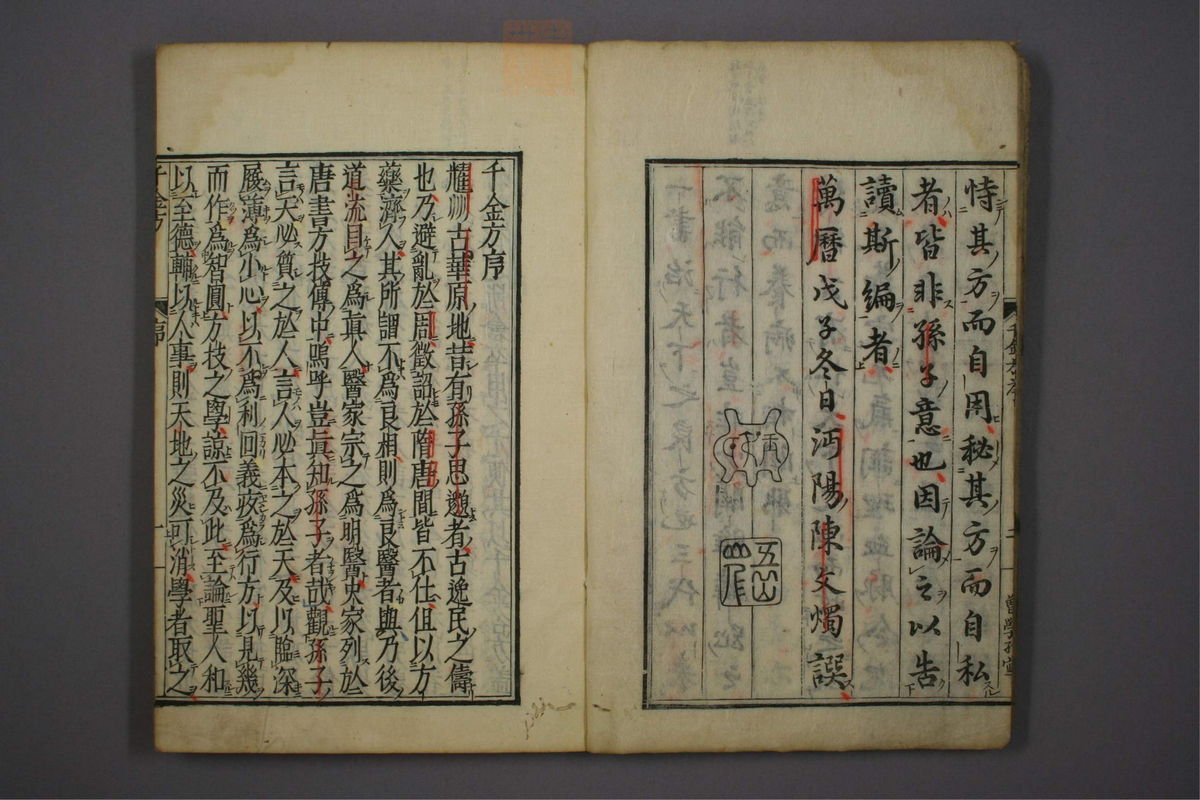 恃其方而自用秘其方而自私
者皆非孫子意也因論之以告
讀斯編者
萬曆戊子冬日沔陽陳文燭譔
千金方序
耀州古華原地昔有孫子思邈者古逸民之儔
也乃避亂於周徵詔於隋唐間皆不仕伹以方
藥濟人其所謂不為良相則為良醫者與乃後
道流目之為眞人醫家宗之為明醫史家列於
唐書方技傳中嗚呼豈眞知孫子者哉觀孫子
言天必質之於人言人必本之於天及以臨深
履薄為小心以不為利回義疚為行方以見幾
而作為智圓方技之學諒不及此至論聖人和
以至德輔以人事則天地之災可消學者取之
序